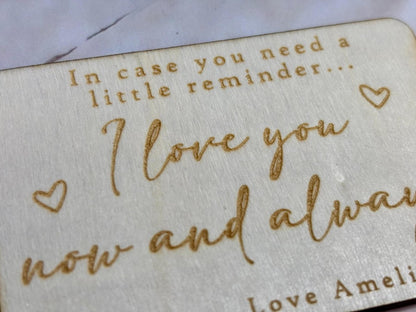 In case you need a
little reminder...
I love you
now and alway
Love Ameli